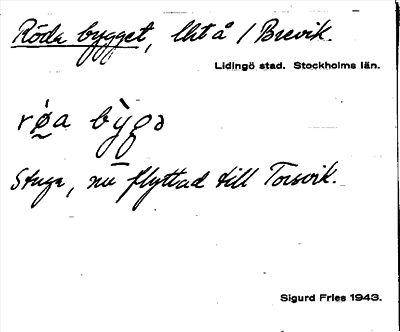 Röda bygget, lht å / Brevik.
Lidingö stad. Stockholms län.
rø̰a bỳgə
Stuga, nu flyttad till Torsvik.
Sigurd Fries 1943.